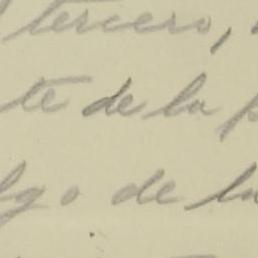 tercero,
te de la p
lgo de la